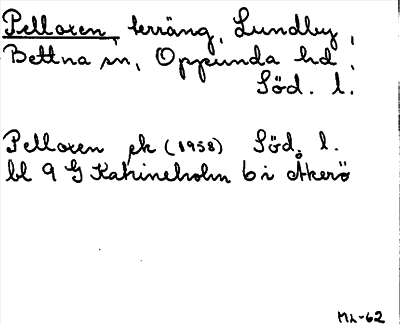 Pelloxen, terräng, Lundby,
Bettna sn, Oppunda hd,
Söd. l.
Pelloxen ek (1958) Söd. l.
bl 9 G Katrineholm 6 i Åkerö
ML-62